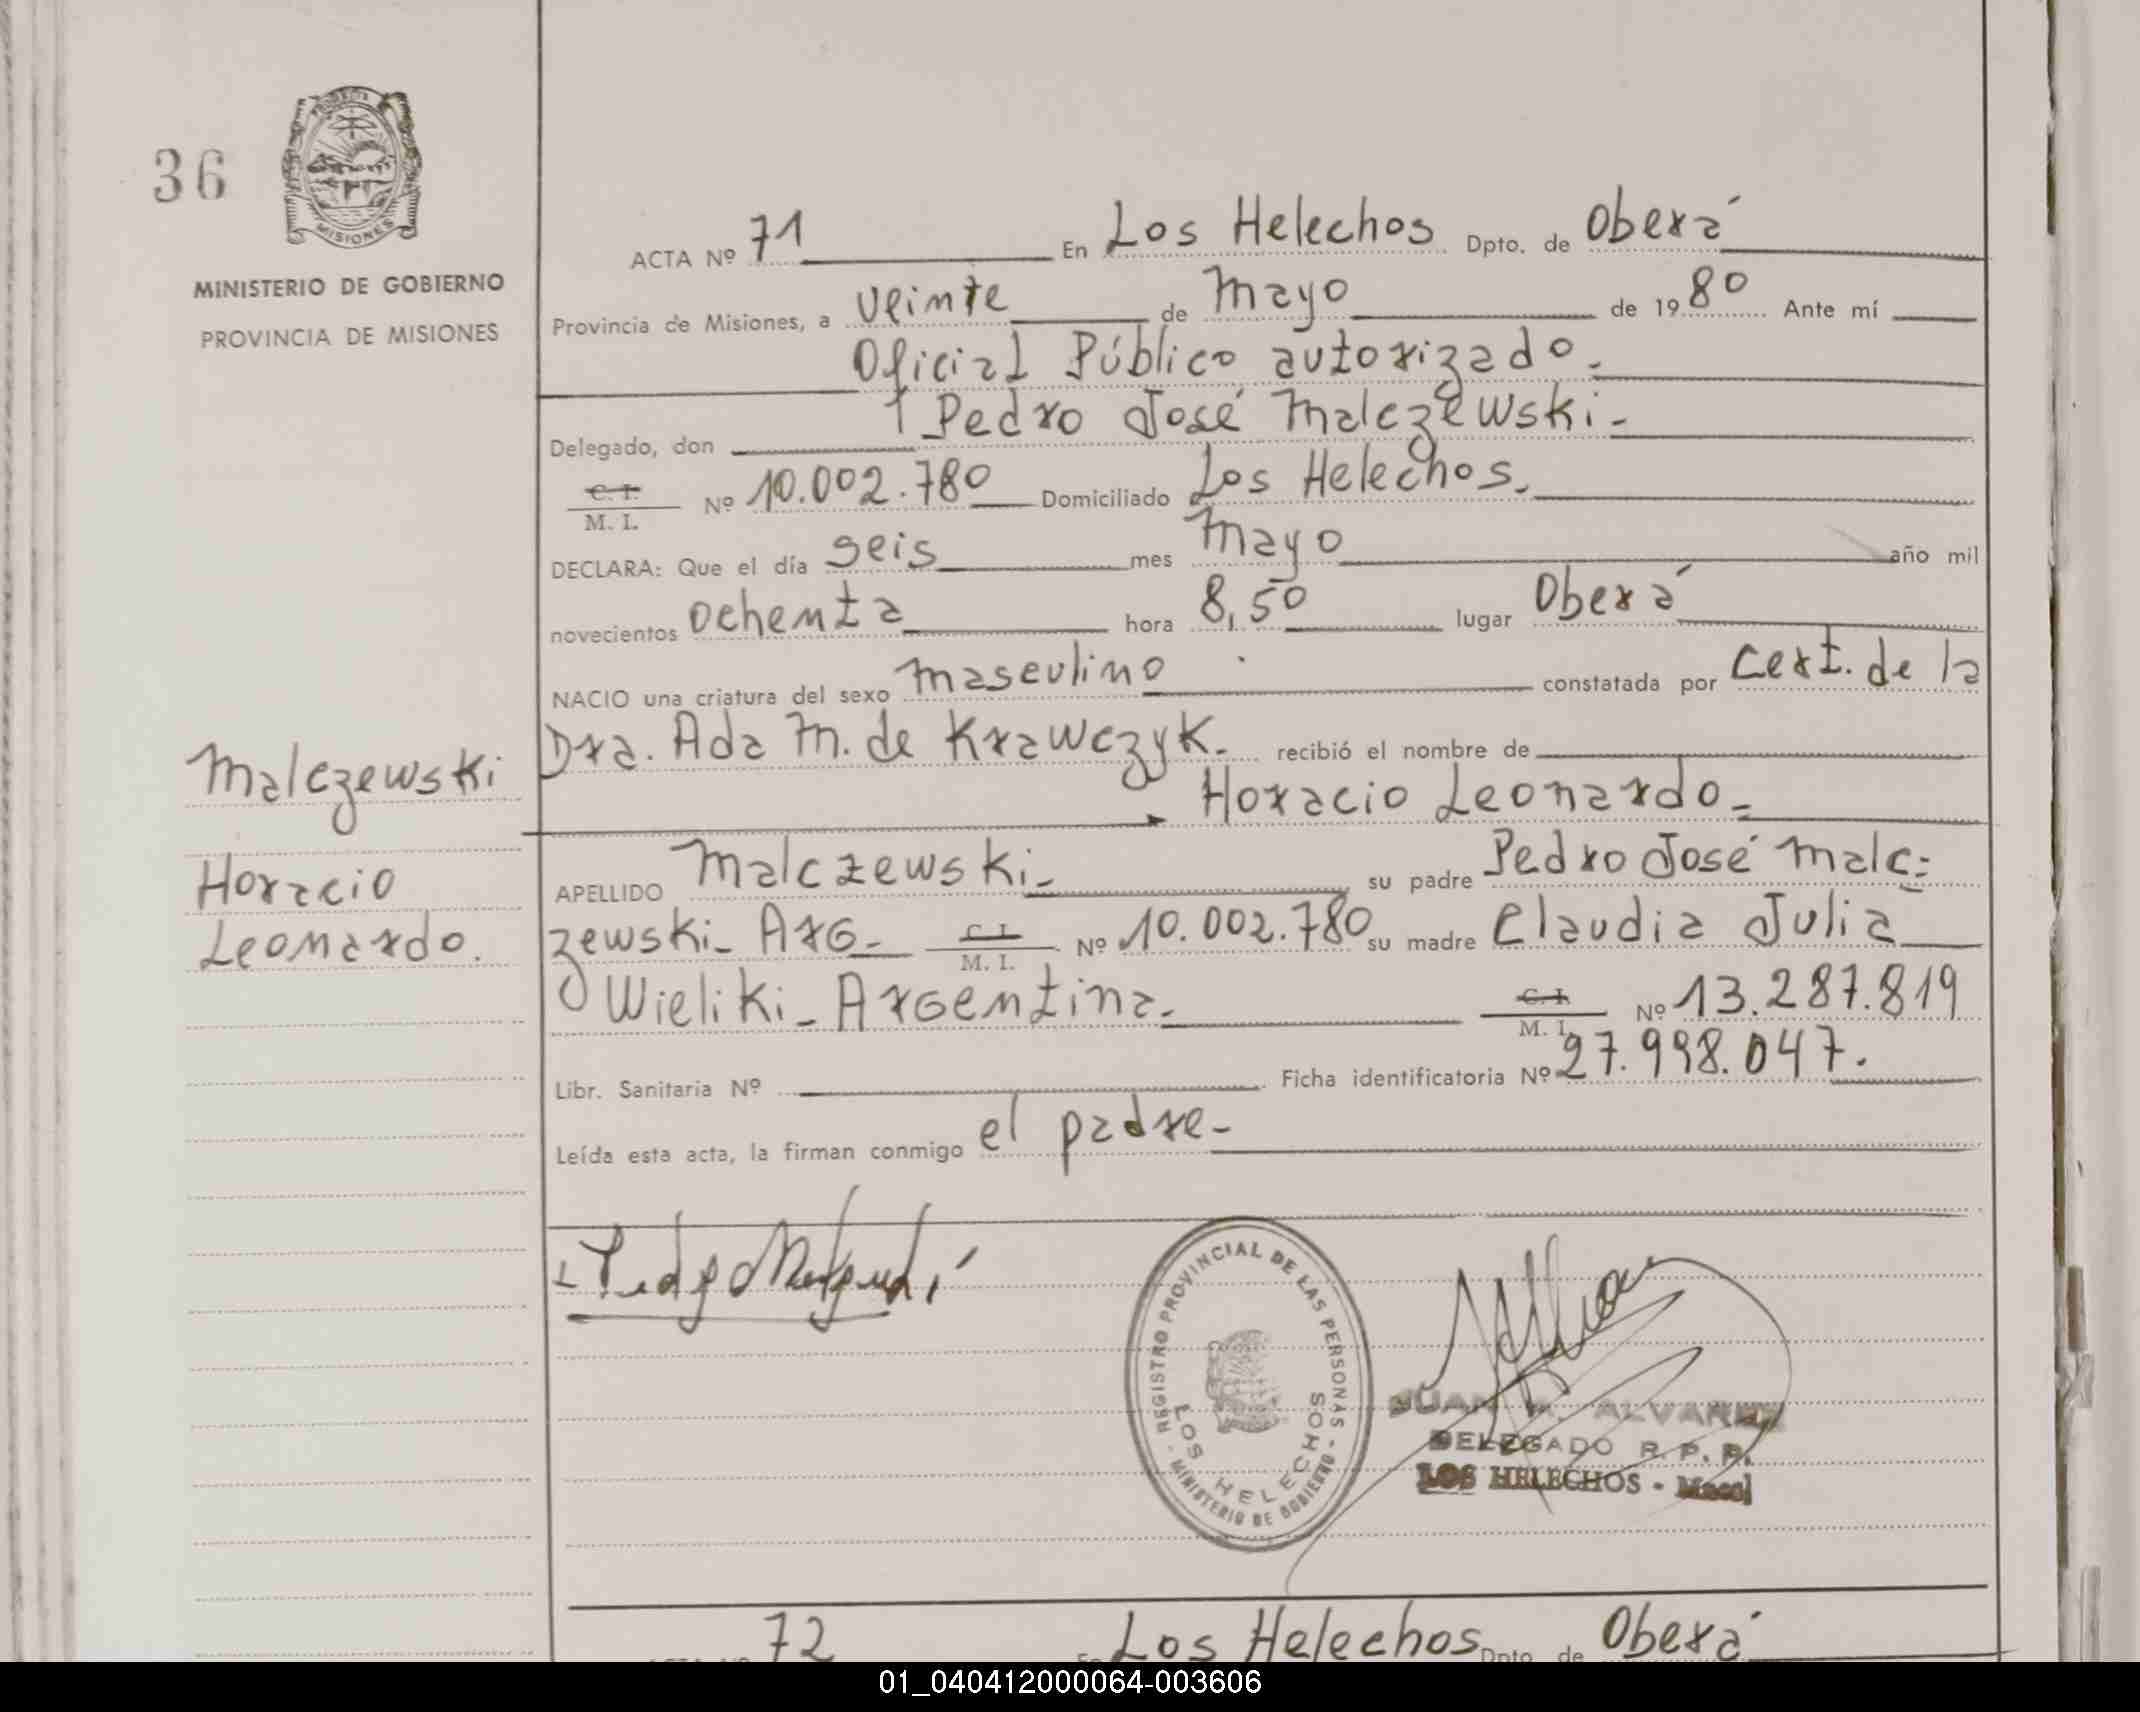 36
PROVINCIA
MISIONES
MINISTERIO DE GOBIERNO
PROVINCIA DE MISIONES
Malczewski
Horacio
Leonardo.
ACTA Nº 71 En Los Helechos Dpto. de Oberá
Provincia de Misiones, a veinte de Mayo de 1980 Ante mí
Oficial Público autorizado.
Delegado, don Pedro José Malczewski-
C. I. / M. I. Nº 10.002.780 Domiciliado Los Helechos.
DECLARA: Que el día seis mes Mayo año mil
novecientos ochenta hora 8,50 lugar Oberá
NACIO una criatura del sexo masculino constatada por Cert. de la
Dra. Ada M. de Krawczyk. recibió el nombre de
Horacio Leonardo-
APELLIDO Malczewski- su padre Pedro José Malc=
zewski- Arg- C. I. / M. I. Nº 10.002.780 su madre Claudia Julia
Wieliki- Argentina- C. I. / M. I. Nº 13.287.819
Libr. Sanitaria Nº Ficha identificatoria Nº 27.998.047.
Leída esta acta, la firman conmigo el padre-
REGISTRO PROVINCIAL DE LAS PERSONAS - MINISTERIO DE GOBIERNO -
LOS HELECHOS
JUAN ALVAREZ
DELEGADO R. P. P.
LOS HELECHOS -
ACTA Nº 72 En Los Helechos Dpto. de Oberá
01_040412000064-003606